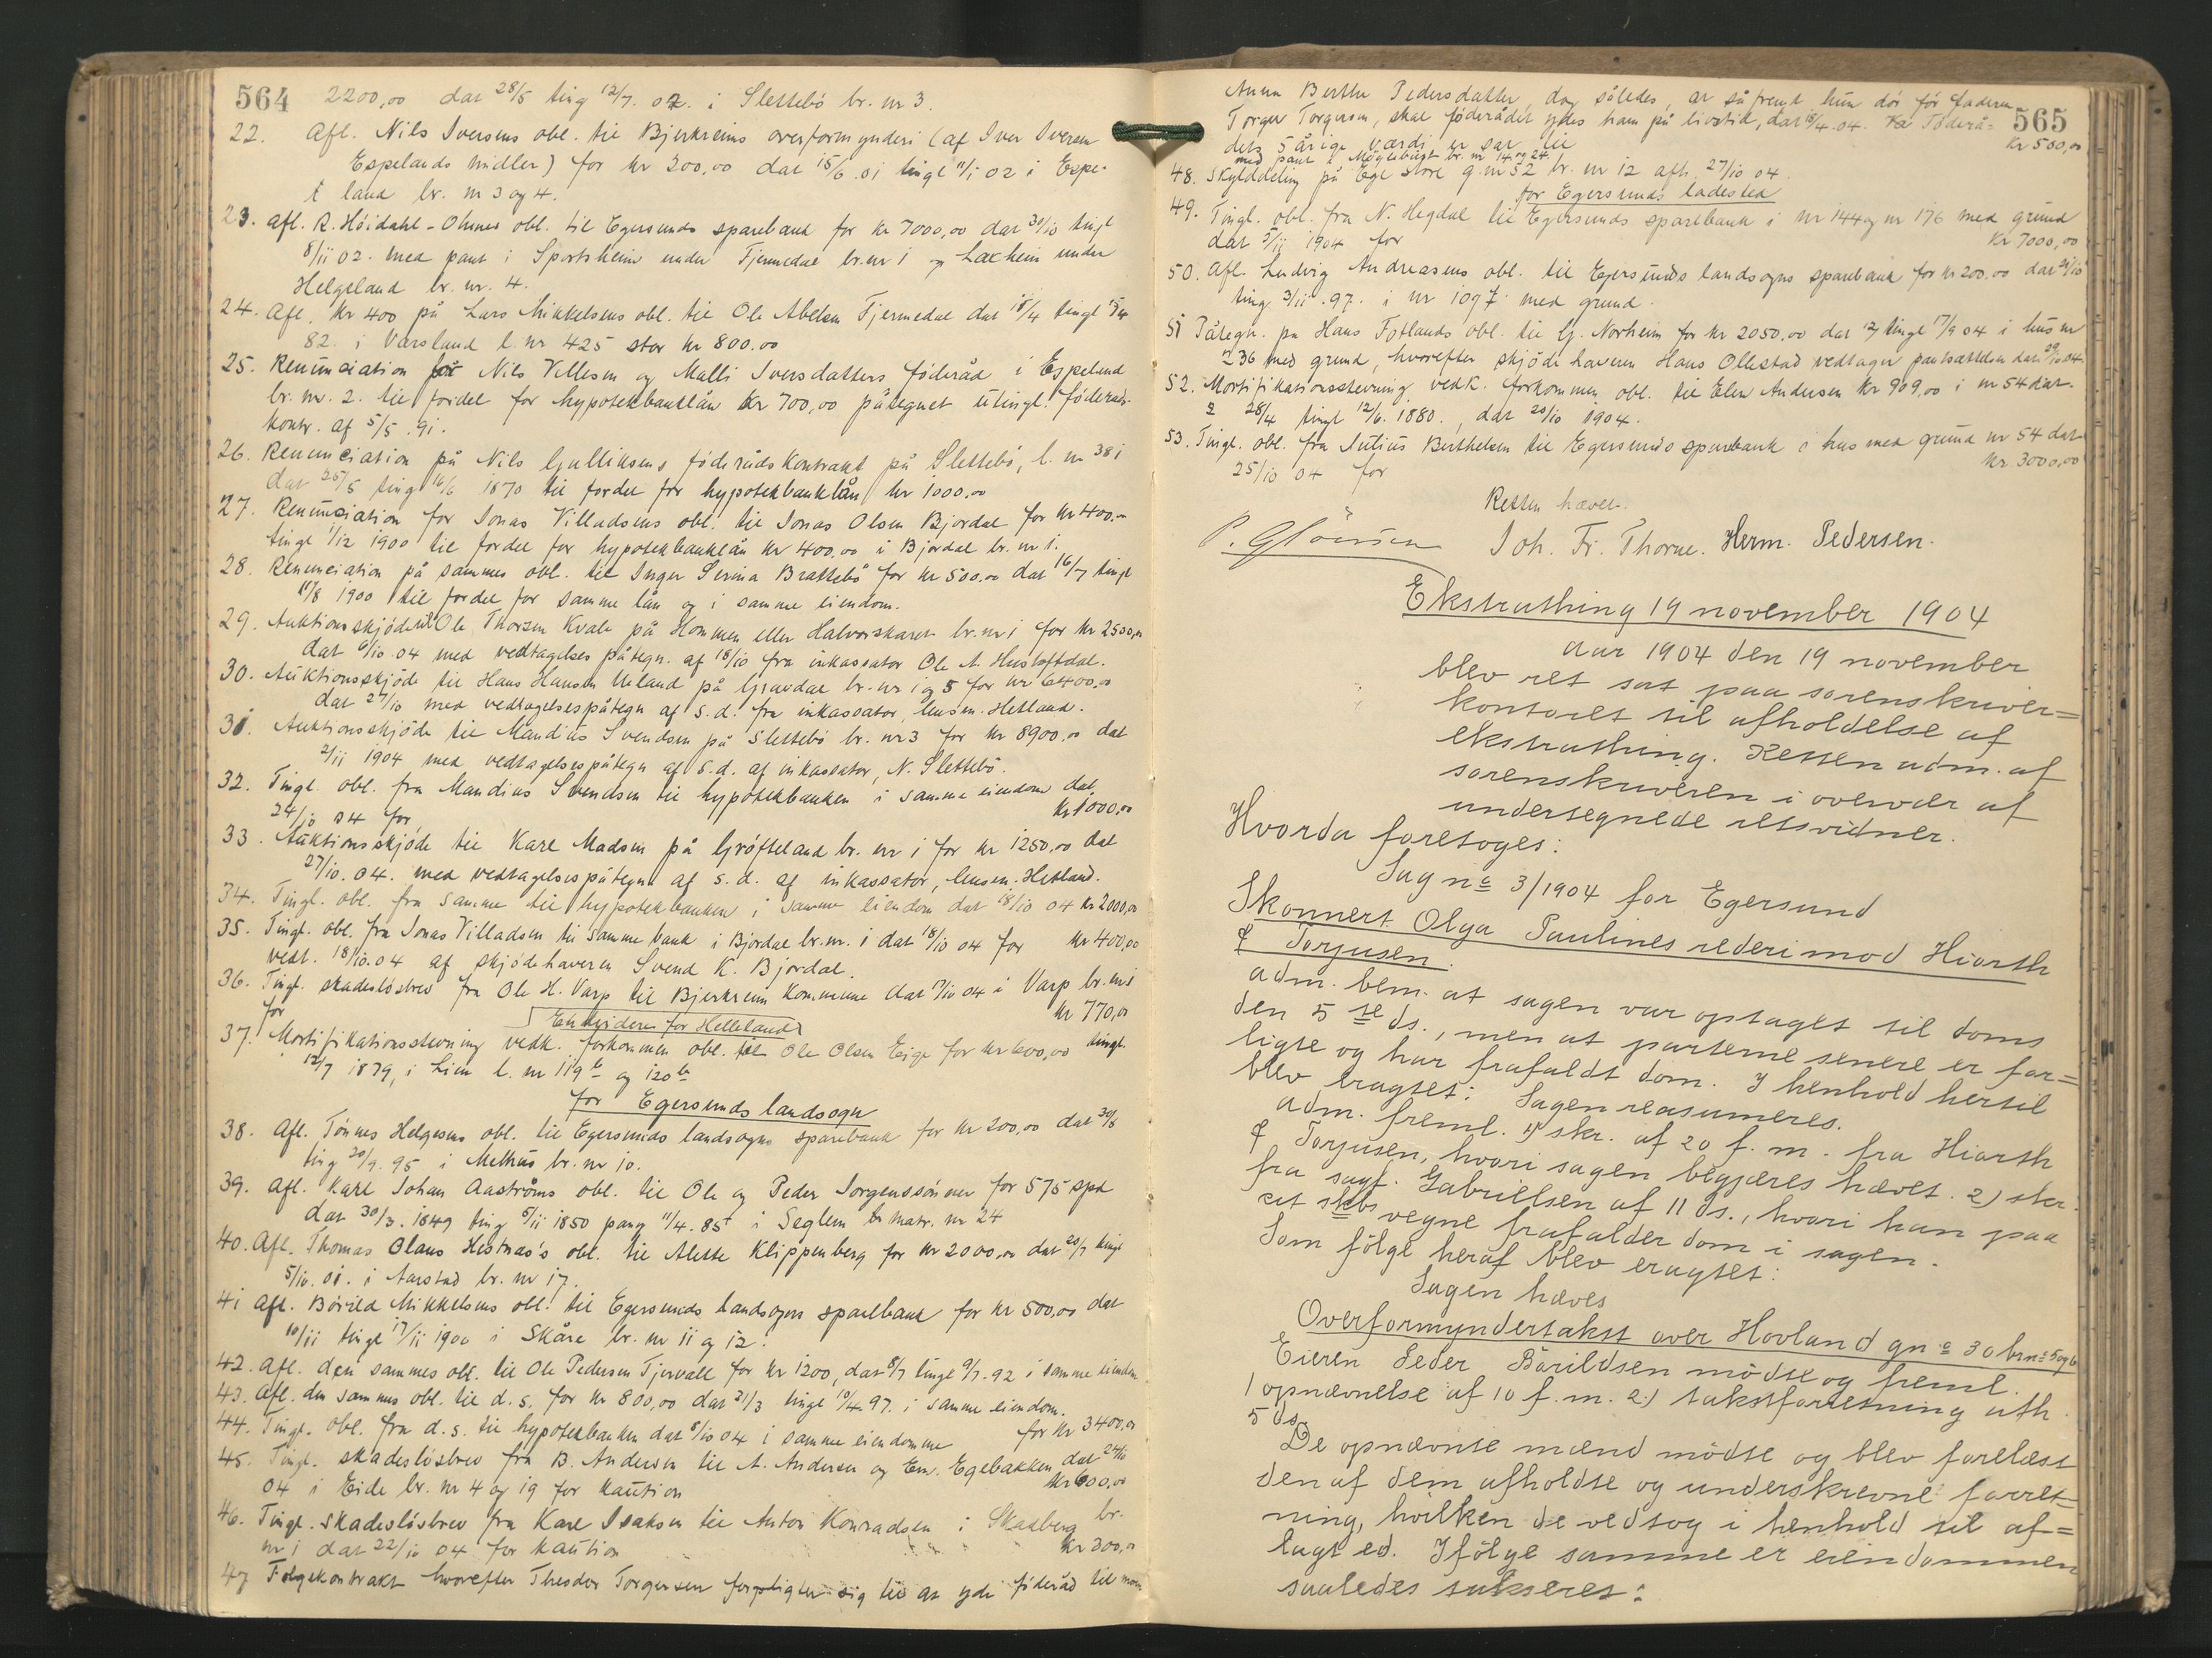 564
2200,00 dat 28/5 ting 12/7. 02. i Slettebö br. nr 3.
22. Afl. Nils Iversens obl. til Bjerkreims overformynderi (af Iver Iversen
Espelands midler) for kr 200,00 dat 15/6 .01 tingl 11/1 02 i Espe-
land br. nr 3 og 4.
23. Afl. R. Höidahl-Ohmes obl. til Egersunds sparebank for kr 7000,00 dat 30/10 tingl
8/11 02. med pant i Sportsheim under Tjermedal br. nr 1 og Laxheim under
Helgeland br. nr. 4.
24. Afl. kr 400 på Lars Mikkelsens obl. til Ole Abelsen Tjermedal dat 18/4 tingl
82. i Varsland l. nr 425 stor kr 800.00
25. Renunciation for Nils Villesen og Malli Iversdatters föderåd i Espeland
br. nr. 2. til fordel for hypotekbanklån kr 700,00 påtegnet utingl. föderåds-
kontr. af 5/5 .91.
26. Renunciation på Nils Gulliksens föderådskontrakt på Slettebö, l. nr 381
dat 25/5 tingl 16/6 1870 til fordel for hypotekbanklån kr 1000.00
27. Renunciation for Jonas Villadsens obl. til Jonas Olsen Bjordal for kr 400.00
tingl 1/12 1900 til fordel for hypotekbanklån kr 400,00 i Bjordal br. nr 1.
28. Renunciation på sammes obl. til Inger Serina Brattebö for kr 500.00 dat 16/7 tingl
17/8 1900 til fordel for samme lån og i samme eiendom.
29. Auktionsskjöde til Ole Thorsen Kvale på Hommen eller Halvorskaret br. nr 1 for kr 2500,00
dat 6/10 .04 med vedtagelsespåtegn. af 18/10 fra inkassator Ole A. Hustoftdal.
30. Auktionsskjöde til Hans Hansen Ueland på Gravdal br. nr 1 og 5 for kr 6400,00
dat 27/10 med vedtagelsespåtegn af s.d. fra inkassator, lensm. Hetland.
31. Auktionsskjöde til Mandius Svendsen på Slettebö br. nr 3 for kr 8900,00 dat
2/11 1904 med vedtagelsespåtegn af s.d. af inkassator, N. Slettebö.
32. Tingl. obl. fra Mandius Svendsen til hypotekbanken i samme eiendom dat.
24/10 04 for kr 1000,00
33. Auktionsskjöde til Karl Madsen på Gröfteland br. nr 1 for kr 1250,00 dat
27/10. 04. med vedtagelsespåtegn af s.d. af inkassator, lensm. Hetland.
34. Tingl. obl. fra samme til hypotekbanken i samme eiendom dat 18/10 04 kr 2000,00
35. Tingl. obl. fra Jonas Villadsen til samme bank i Bjordal br. nr. 1 dat 18/10 04 for kr 400,00
vedt. 18/10.04 af skjödehaveren Svend K. Bjordal.
36. Tingl. skadeslösbrev fra Ole H. Varp til Bjerkreim kommune dat 7/10 04 i Varp br. nr 1
for kr 770,00
End videre for Helleland
37. Mortifikationsstevning vedk. forkommen obl. til Ole Olsen Eige for kr 600,00 tingl.
12/7 1879, i Lien l. nr 119 b og 120 b
for Egersunds landsogn
38. Afl. Tönnes Helgesens obl. til Egersunds landsogns sparebank for kr 200,00 dat 30/8
ting 20/9. 95 i Melhus br. nr 10.
39. Afl. Karl Johan Aaströms obl. til Ole og Peder Jorgenssönner for 575 spd
dat 30/3. 1849 ting 5/11 1850 paany 11/4. 85 i Seglem matr. nr 24
40. Afl. Thomas Olaus Hestnæs's obl. til Alette Klippenberg for kr 2000,00 dat 20/7 tingl
5/10. 01. i Aarstad br. nr 17.
41 Afl. Börild Mikkelsens obl. til Egersunds landsogns sparebank for kr 500,00 dat
10/11 tingl 17/11 1900 i Skåre br. nr 11 og 12.
42. Afl. den sammes obl. til Ole Pedersen Tjorvall for kr 1200, dat 8/7 tingl 9/7. 92 i samme eiendom
43. Afl. den sammes obl. til d.s. for kr 800,00 dat 31/3 tingl 10/4. 97. i samme eiendom.
44. Tingl. obl. fra d.s. til hypotekbanken dat 8/10 04 i samme eiendomme for kr 3400,00
45. Tingl. skadeslösbrev fra B. Andersen til A. Andersen og Em. Egebakken dat 24/10
04 i Eide br. nr 4 og 19 for kaution kr 600,00
46. Tingl. skadeslösbrev fra Karl Isaksen til Anton Konradsen i Skadberg br.
nr 1 dat 22/10 04 for kaution kr 300,00
47 Fölgekontrakt hvorefter Theodor Torgersen forpligter sig til at yde föderåd til
565
Anna Berthe Pedersdatter, dog således, at såfremt hun dör för faderen
Torger Torgersen, skal föderådet ydes ham på livstid, dat 15/4 .04. Föderå-
dets 5årige værdi er sat til kr 500,00
med pant i Möglebust br. nr 14 og 24
48. Skylddeling på Ege store g. nr 52 br. nr 12 afh. 27/10 04.
for Egersunds ladested
49. Tingl. obl. fra N. Hegdal til Egersunds sparebank i nr 144 og nr 176 med grund
dat 5/11 1904 for kr 7000,00
50. Afl. Ludvig Andreasens obl. til Egersunds landsogns sparebank for kr 200.00 dat 21/10
ting 3/11 .97. i nr 109 med grund.
51 Påtegn. på Hans Fotlands obl. til G. Norheim for kr 2050,00 dat tingl 17/9 04 i hus nr
236 med grund, hvorefter skjödehaveren Hans Ollestad vedtager pantsættelsen dat 29/10 04.
52. Mortifikationsstevning vedk. forkommen obl. til Elen Andersen kr 909,00 i nr 54 dat.
28/4 tingl 12/6. 1880., dat 20/10 1904.
53. Tingl. obl. fra Julius Berthelsen til Egersunds sparebank i hus med grund nr 54 dat
25/10 04 for kr. 3000,00
Retten hævet.
Joh. Fr. Thorne. Herm. Pedersen.
Ekstrathing 19 november 1904
Aar 1904 den 19 november
blev ret sat paa sorenskriver=
kontoret til afholdelse af
ekstrathing. Retten adm. af
sorenskriveren i overvær af
undertegnede retsvidner.
Hvorda foretoges:
Sag no 3/1904 for Egersund
Skonnert Olga Paulines rederi mod Hiorth
& Torjusen.
Adm. bem. at sagen var optaget til doms
den 5te ds., men at parterne senere er for=
ligte og har frafaldt dom. I henhold hertil
blev eragtet: Sagen reasumeres.
Adm. freml. 1) skr. af 20 f. m. fra Hiorth
& Torjusen, hvori sagen begjæres hævet. 2) skr.
fra sagf. Gabrielsen af 11 ds., hvori han paa
cit skbs vegne frafalder dom i sagen.
Som fölge heraf blev eragtet:
Sagen hæves
Overformyndertakst over Hovland gno 30 brno 5 og 6
Eieren Peder Bårildsen mödte og freml.
1 opnævnelse af 10 f. m. 2.) takstforretning afh.
5 ds.
De opnævnte mænd mödte og blev forelæst
den af dem afholdte og underskrevne forret=
ning, hvilken de vedtog i henhold til af=
lagt ed. Ifölge samme er eiendommen
saaledes takseret: